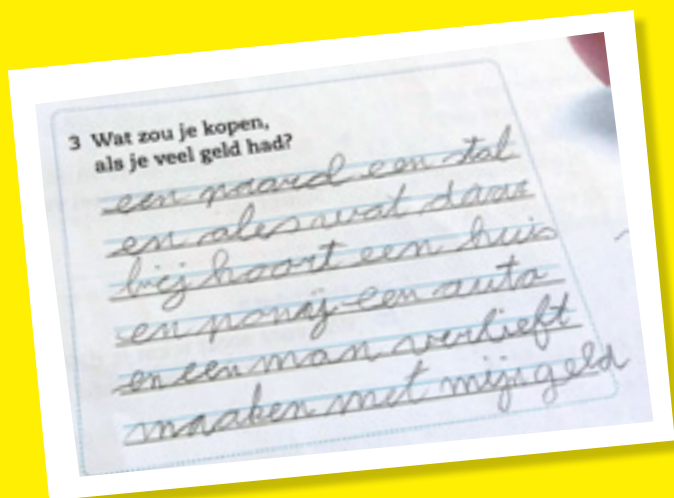 3 Wat zou je kopen,
als je veel geld had?
een paard een stal
en ales wat daar
bij hoort een huis
en ponij een auto
en een man verlieft
maaken met mijn geld